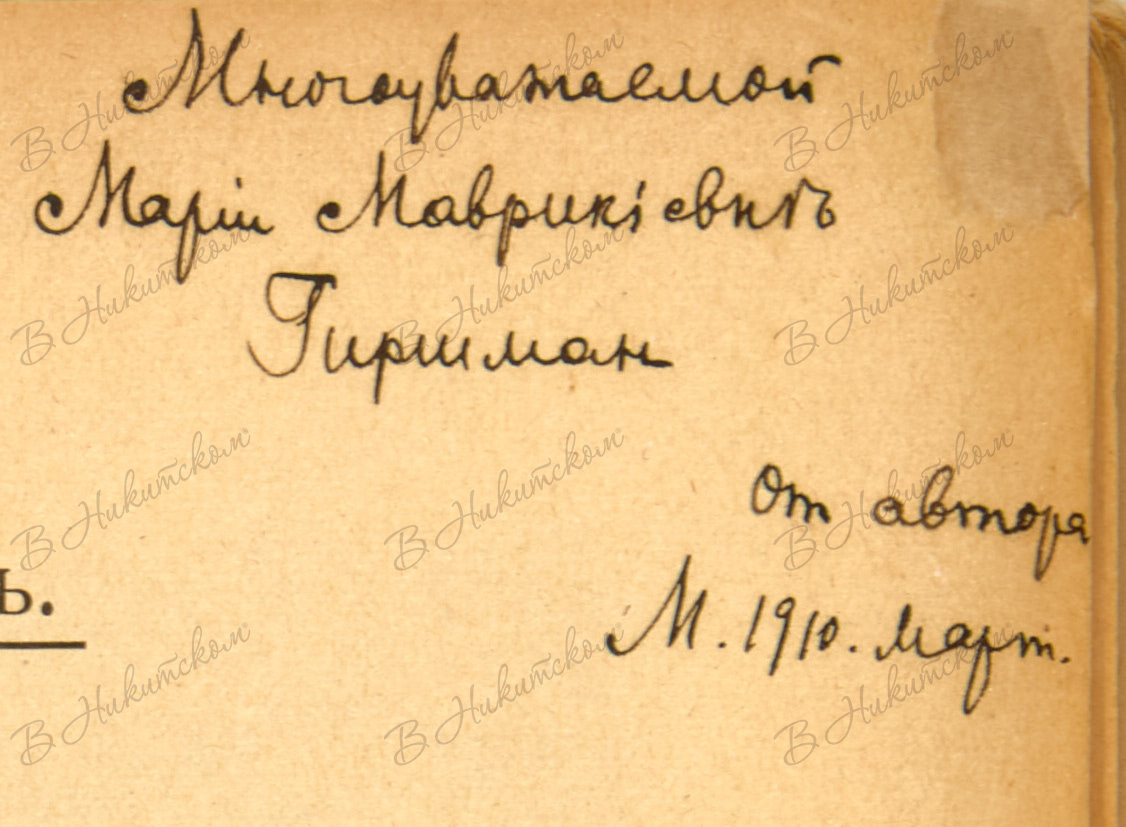 Многоуважаемой
Маріи Маврикіевнѣ
Гиршман
От автора
ъ.
М. 1910. март.
В Никитском